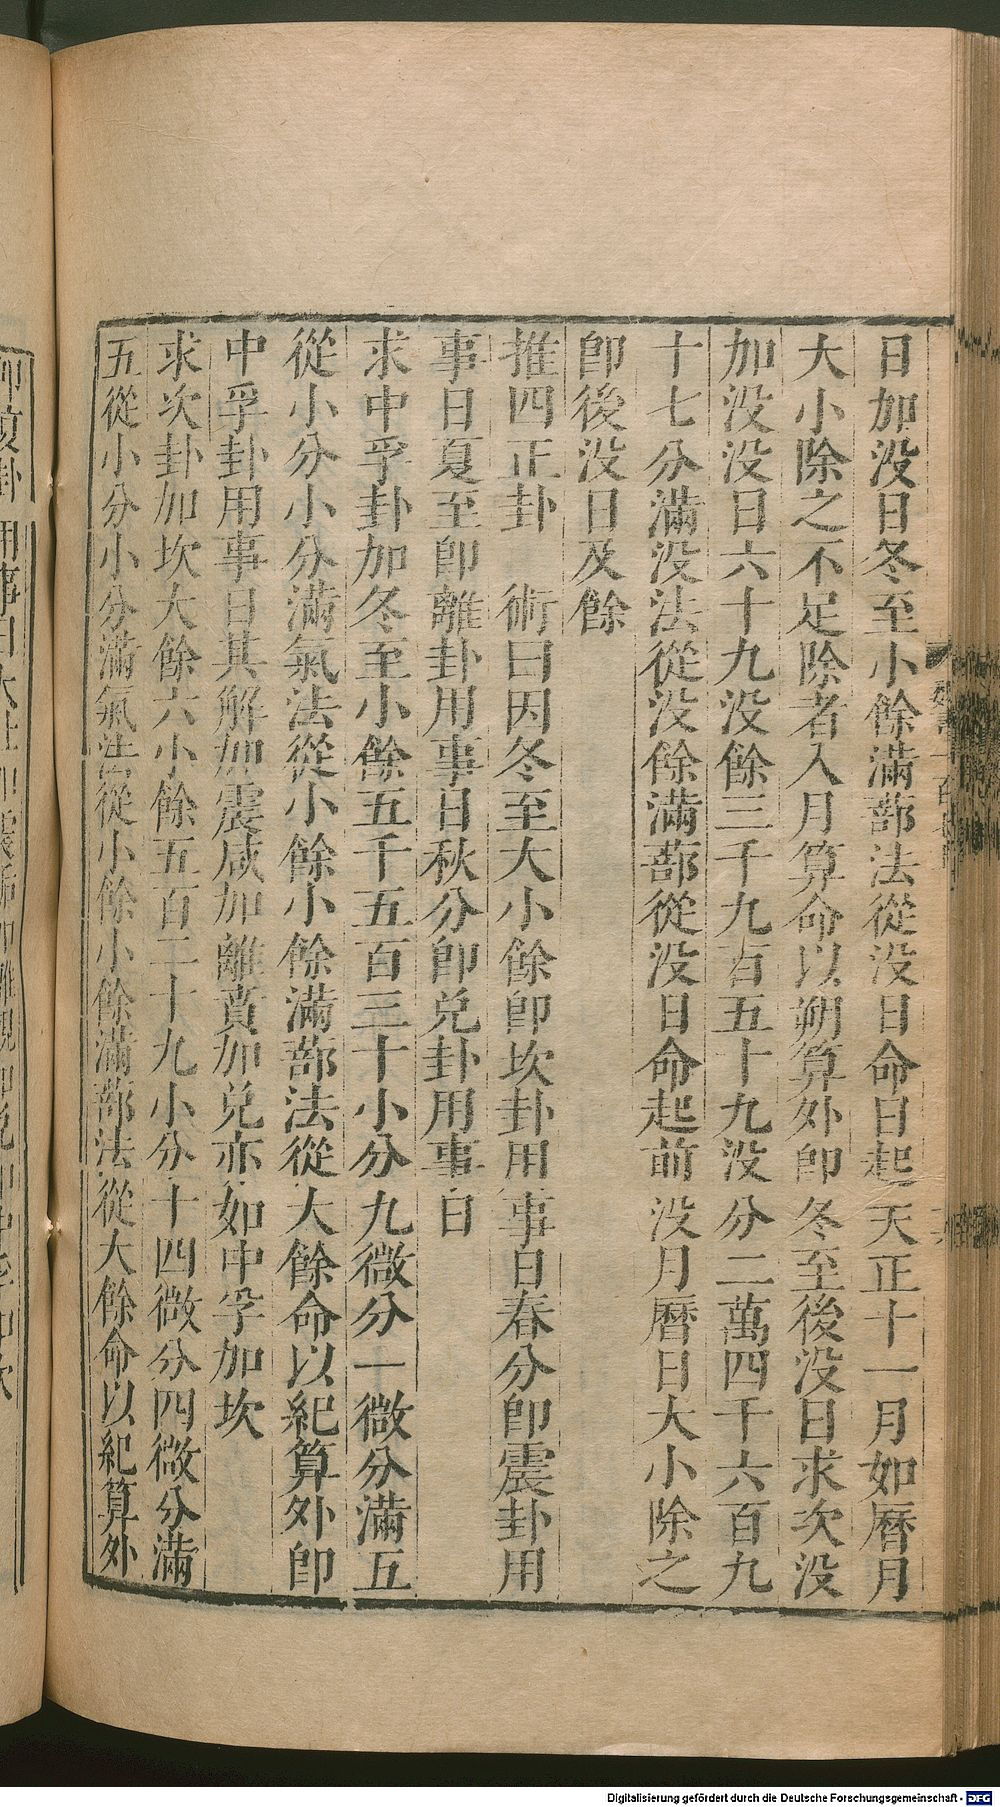 日加没日冬至小餘滿蔀法從没日命日起天正十一月如曆月
大小除之不足除者入月算命以朔算外卽冬至後没日求次没
加没没日六十九没餘三千九百五十九没分二萬四千六百九
十七分滿没法從没餘滿蔀從没日命起前没月曆日大小除之
卽後没日及餘
推四正卦　術曰因冬至大小餘卽坎卦用事日春分卽震卦用
事日夏至卽離卦用事日秋分卽兌卦用事日
求中孚卦加冬至小餘五千五百三十小分九微分一微分滿五
從小分小分滿氣法從小餘小餘滿蔀法從大餘命以紀算外卽
中孚卦用事日其解加震咸加離賁加兌亦如中孚加坎
求次卦加坎大餘六小餘五百二十九小分十四微分四微分滿
五從小分小分滿氣法從小餘小餘滿蔀法從大餘命以紀算外
Digitalisierung gefördert durch die Deutsche Forschungsgemeinschaft - DFG